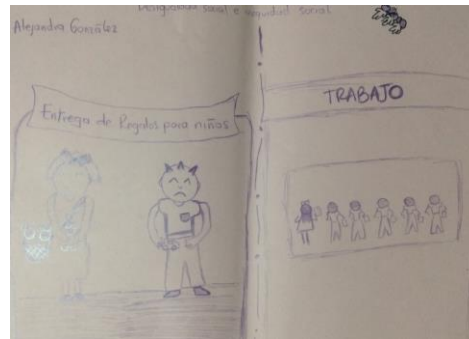 Desigualdad social e inequidad social
Alejandra González
Entrega de Regalos para niñas
TRABAJO